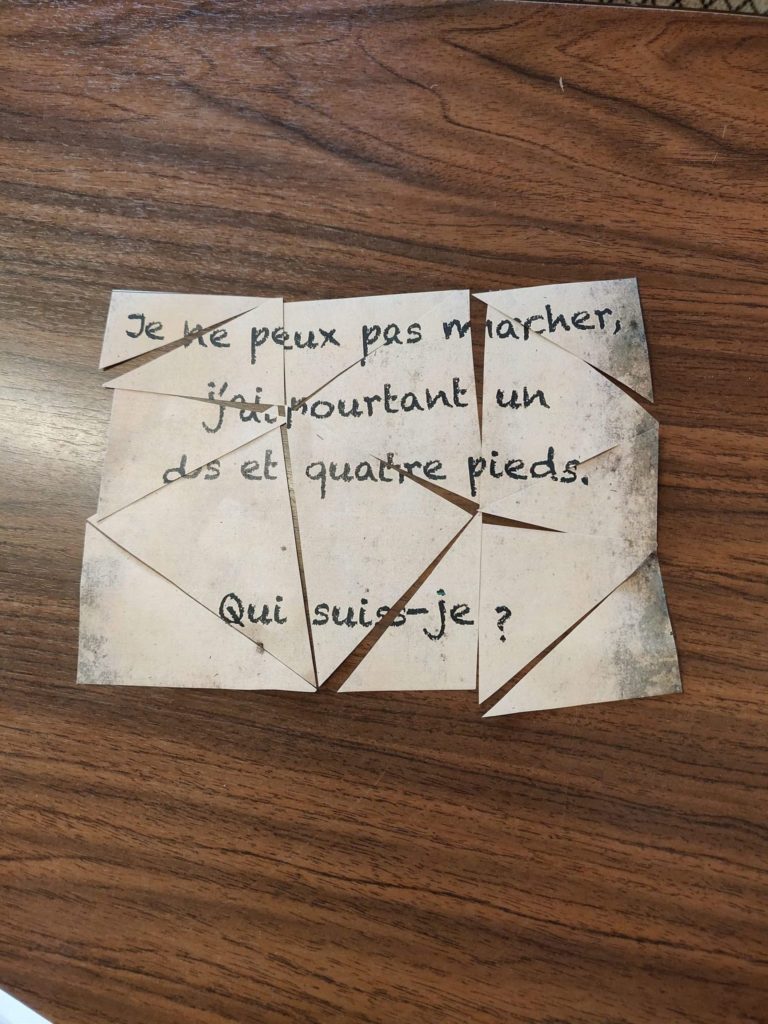 Je ne peux pas marcher,
j'ai pourtant un
dos et quatre pieds.
Qui suis-je ?